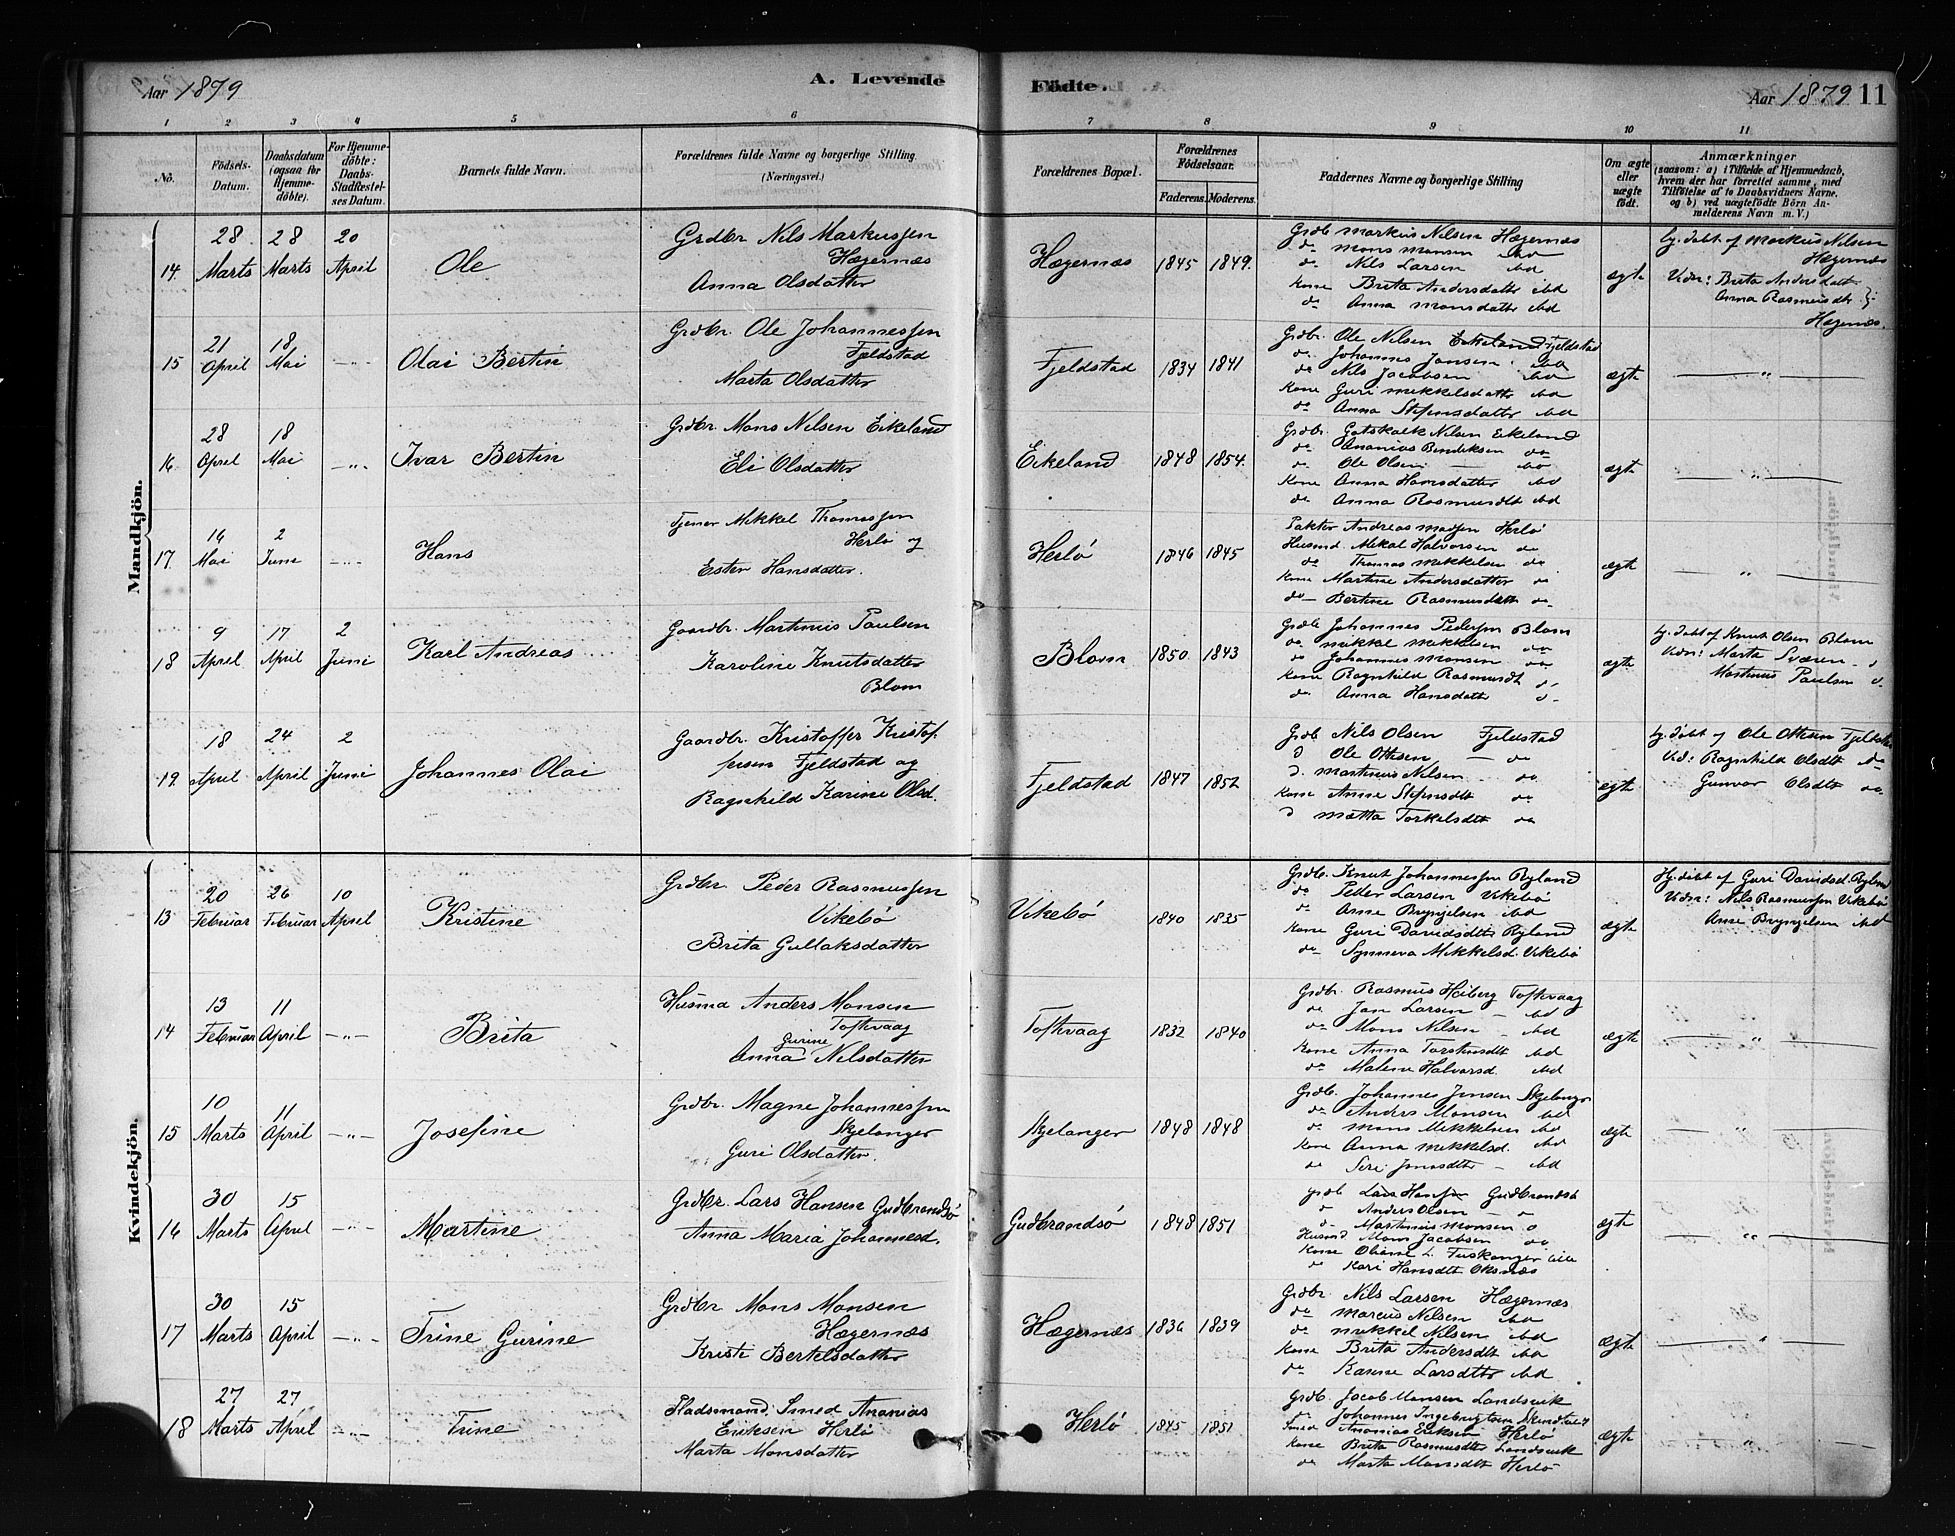 Aar 1879
A. Levende
Fødte.
Aar 1879 11
1 2 3 4 5 6 7 8 9 10 11
No.
Fødsels-Datum.
Daabsdatum (ogsaa for Hjemmedøbte).
For Hjemmedøbte: Daabs-Stadfæstelses Datum.
Barnets fulde Navn.
Forældrenes fulde Navne og borgerlige Stilling (Næringsvei.)
Forældrenes Bopæl.
Forældrenes Fødselsaar.
Faderens. Moderens.
Faddernes Navne og borgerlige Stilling
Om ægte eller uægte født.
Anmærkninger
(saasom: a) i Tilfælde af Hjemmedaab, hvem der har forrettet samme, med Tilføielse af to Daabsvidners Navne, og b) ved uægtefødte Børn Anmelderens Navn m. V.)
Mandkjön.
14. 28 Marts 28 Marts 20 April Ole
Grdbr Nils Markussen
Hægernæs
Anna Olsdatter
Hægernæs 1845 1849.
Grdb Markus Nilsen Hægernæs
do Mons Monsen ibd
do Nils Larsen ibd
Kone Brita Andersdatter ibd
do Anna Monsdatter ibd
ægte
hj. døbt af Markus Nilsen
Hægernæs
Vidn: Brita Andersdatt
Anna Rasmusdt
Hægernæs.
15 21 April 18 Mai -"- Olai Bertin
Grdbr. Ole Johannessen
Fjeldstad
Marta Olsdatter
Fjeldstad 1834 1841
Grdbr. Ole Nilsen Eikeland Fjeldstad
do. Johannes Jansen ibd
do Nils Jacobsen ibd
Kone Guri Mikkelsdatter ibd
do Anna Stefensdatter ibd
ægte
— " —
16 28 April 18 Mai -"- Ivar Bertin
Grdbr Mons Nilsen Eikeland
Eli Olsdatter
Eikeland 1848 1854.
Grdbr. Gotskalk Nilsen Eikeland
do Ananias Bendiksen do
do Ole Olsen — ibd
Kone Anna Hansdatter ibd
do Anna Rasmusdt ibd
ægte
— " —
17. 16 Mai 2 Juni -"- Hans
Tjener Mikkel Thomassen
Herlø og
Ester Hansdatter.
Herlö 1846 1845
Pakter Andreas Madsen Herlø
Husmd Mikal Halvorsen do
do Thomas Mikkelsen do
Kone Martine Andersdatter do
do Bertine Rasmusdatt do
ægte
— " —
18 9 April 17 April 2 Juni Karl Andreas
Gaardbr. Martinus Paulsen
Karoline Knutsdatter
Blom
Blom 1850 1843
Grdb Johannes Pedersen Blom
do Mikkel Mikkelsen do
do Johannes Monsen do
Kone Ragnhild Rasmusdt do
do Anna Hansdatt do
ægte
hj. døbt af Knut Olsen Blom
Vidn: Marta
Martinus Paulsen do
19. 18 April 24 April 2 Juni Johannes Olai
Gaardbr. Kristoffer Kristof-
fersen Fjeldstad og
Ragnhild Karine Olsd.
Fjeldstad 1847 1852
Grdb Nils Olsen Fjeldstad
D Ole Ottesen — do
D. Martinus Nilsen do
Kone Anne Stefensdt do
D Matta Torkelsdt do
ægte
hj. døbt af Ole Ottesen Fjeldstad
Vid: Ragnhild Olsdt do
Gunvor Olsdt do
Kvindekjön.
13 20 Februar 26 Februar 10 April Kristine
Grdbr Peder Rasmussen
Vikebø
Brita Gullaksdatter
Vikebø 1840 1835
Grdb. Knut Johannessen Ryland
do Peder Larsen Vikebø
do Arne Brynjelsen ibd
Kone Guri Davidsdtr Ryland
do Synneva Mikkelsd. Vikebø
ægte
Hj. døbt af Guri Davidsd. Ryland
Vidn: Nils Rasmussen Vikebø
Arne Brynjelsen ibd
14 13 Februar 11 April -"- Brita
Husmd Anders Monsen
Toftevaag
Gurine
Anna Nilsdatter
Toftevaag 1832 1840
Grdbr. Rasmus Heiberg Toftevaag
do Jan Larsen — ibd
do Mons Nilsen — ibd
Kone Anna Torstensdt ibd
do Malena Halvorsd. ibd
ægte
— " —
15 10 Marts 11 April -"- Josefine
Grdbr. Magne Johannessen
Skjelanger
Guri Olsdatter.
Skjelanger 1848 1848
Grdb. Johannes Jensen Skjelanger
do Anders Monsen ibd
do Mons Mikkelsen ibd
Kone Anna Mikkelsd. ibd
do Siri Jonasdtr — ibd
ægte
— " —
16 30 Marts 15 April -"- Martine
Grdbr. Lars Hansen Gudbrandsø
Anna Maria Johannesd.
Gudbrandsø 1848 1851
Grdb Lars Hansen Gudbrandsø
do Anders Olsen — do
do Martinus Monsen do
Husmd Mons Jacobsen do
Kone Oliane L. Tuskanger lille
do Kari Hansdt Oksnæs
ægte
— " —
17 30 Marts 15 April -"- Trine Gurine
Grdbr Mons Monsen
Hægernæs
Kristi Bertelsdatter
Hægernæs 1836 1839
Grdbr. Nils Larsen Hægernæs
do Marcus Nilsen ibd
do Mikkel Nilsen ibd
Kone Brita Andersdt ibd
do Karine Larsdtr ibd
ægte
— " —
18 27 Marts 27 April -"- Trine
Pladsmand, Smed Ananias
Eriksen Herlø
Marta Monsdatter
Herlø 1845 1851
Grdb. Jacob Monsen Landsvik
do Johannes Ingebrigtsen
Smed Ananias Eriksen Herlø
Kone Brita Rasmusdt Landsvik
do Marta Monsdt Herlø
ægte
— " —